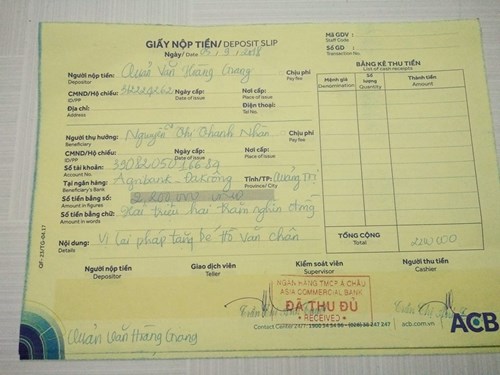 GIẤY NỘP TIỀN/ DEPOSIT SLIP
Ngày/ Date 9 / 2018
Mã GDV :
Staff Code
Số GD :
Transaction No.
Người nộp tiền: Quản Văn Hoàng Giang Chịu phí
Depositor Pay fee
CMND/Hộ chiếu: Ngày cấp: Nơi cấp:
ID/PP Date of issue Place of issue
Địa chỉ: Điện thoại:
Address Tel No.
BẢNG KÊ THU TIỀN
List of cash receipts
Mệnh giá Số lượng Thành tiền
Denomination Quantity Amount
Người thụ hưởng: Nguyễn Thị Thanh Nhàn Chịu phí
Beneficiary Pay fee
CMND/Hộ chiếu: Ngày cấp: Nơi cấp:
ID/PP Date of issue Place of issue
Số tài khoản:
Account No.
Tại ngân hàng: Agribank - Đakrông Tỉnh/TP: Quảng Trị
Beneficiary's bank Province/ City
Số tiền bằng số: 2,200,000
Amount in figures
Số tiền bằng chữ: Hai triệu hai trăm nghìn đồng
Amount in words
Nội dung : Vì lai pháp tăng bé Hồ Văn Chân
Details
TỔNG CỘNG
Total
QF-23/TG-04.17
Người nộp tiền Giao dịch viên Kiểm soát viên Người thu tiền
Depositor Teller Supervisor Cashier
NGÂN HÀNG TMCP Á CHÂU
ASIA COMMERCIAL BANK
ĐÃ THU ĐỦ
• RECEIVED •
Quản Văn Hoàng Giang
Contact Center 24/7: 1900 54 54 86 - (028) 38 247 247
acb.com.vn
ACB